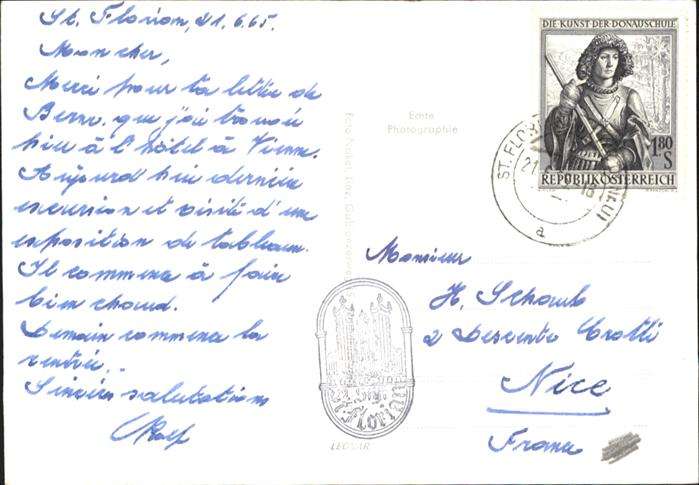 St. Florian, 21.6.65.
Mon cher,
Merci pour ta lettre de
Berne, que j'ai trouvée
hier à l'hôtel à Vienne.
Aujourd'hui dernière
excursion et visite d'une
exposition de tableaux.
Il commence à faire
bien chaud.
Demain commence la
rentrée.
Sincères salutations
Rolf
Echte
Photographie
DIE KUNST DER DONAUSCHULE
1.80
S
REPUBLIK ÖSTERREICH
ST. FLORIAN
21.
18
a
Monsieur
H. Schaub
2 Descente Crotti
Nice
France
St. Florian
LEOMAR